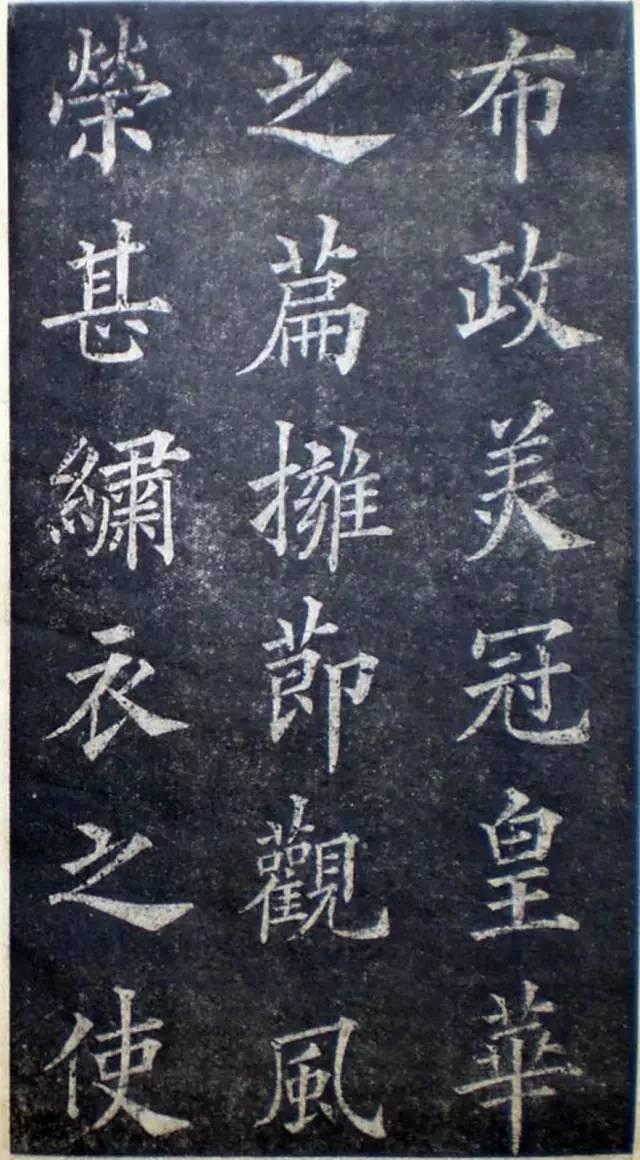 布政美冠皇華
之篇擁節觀風
榮甚繡衣之使